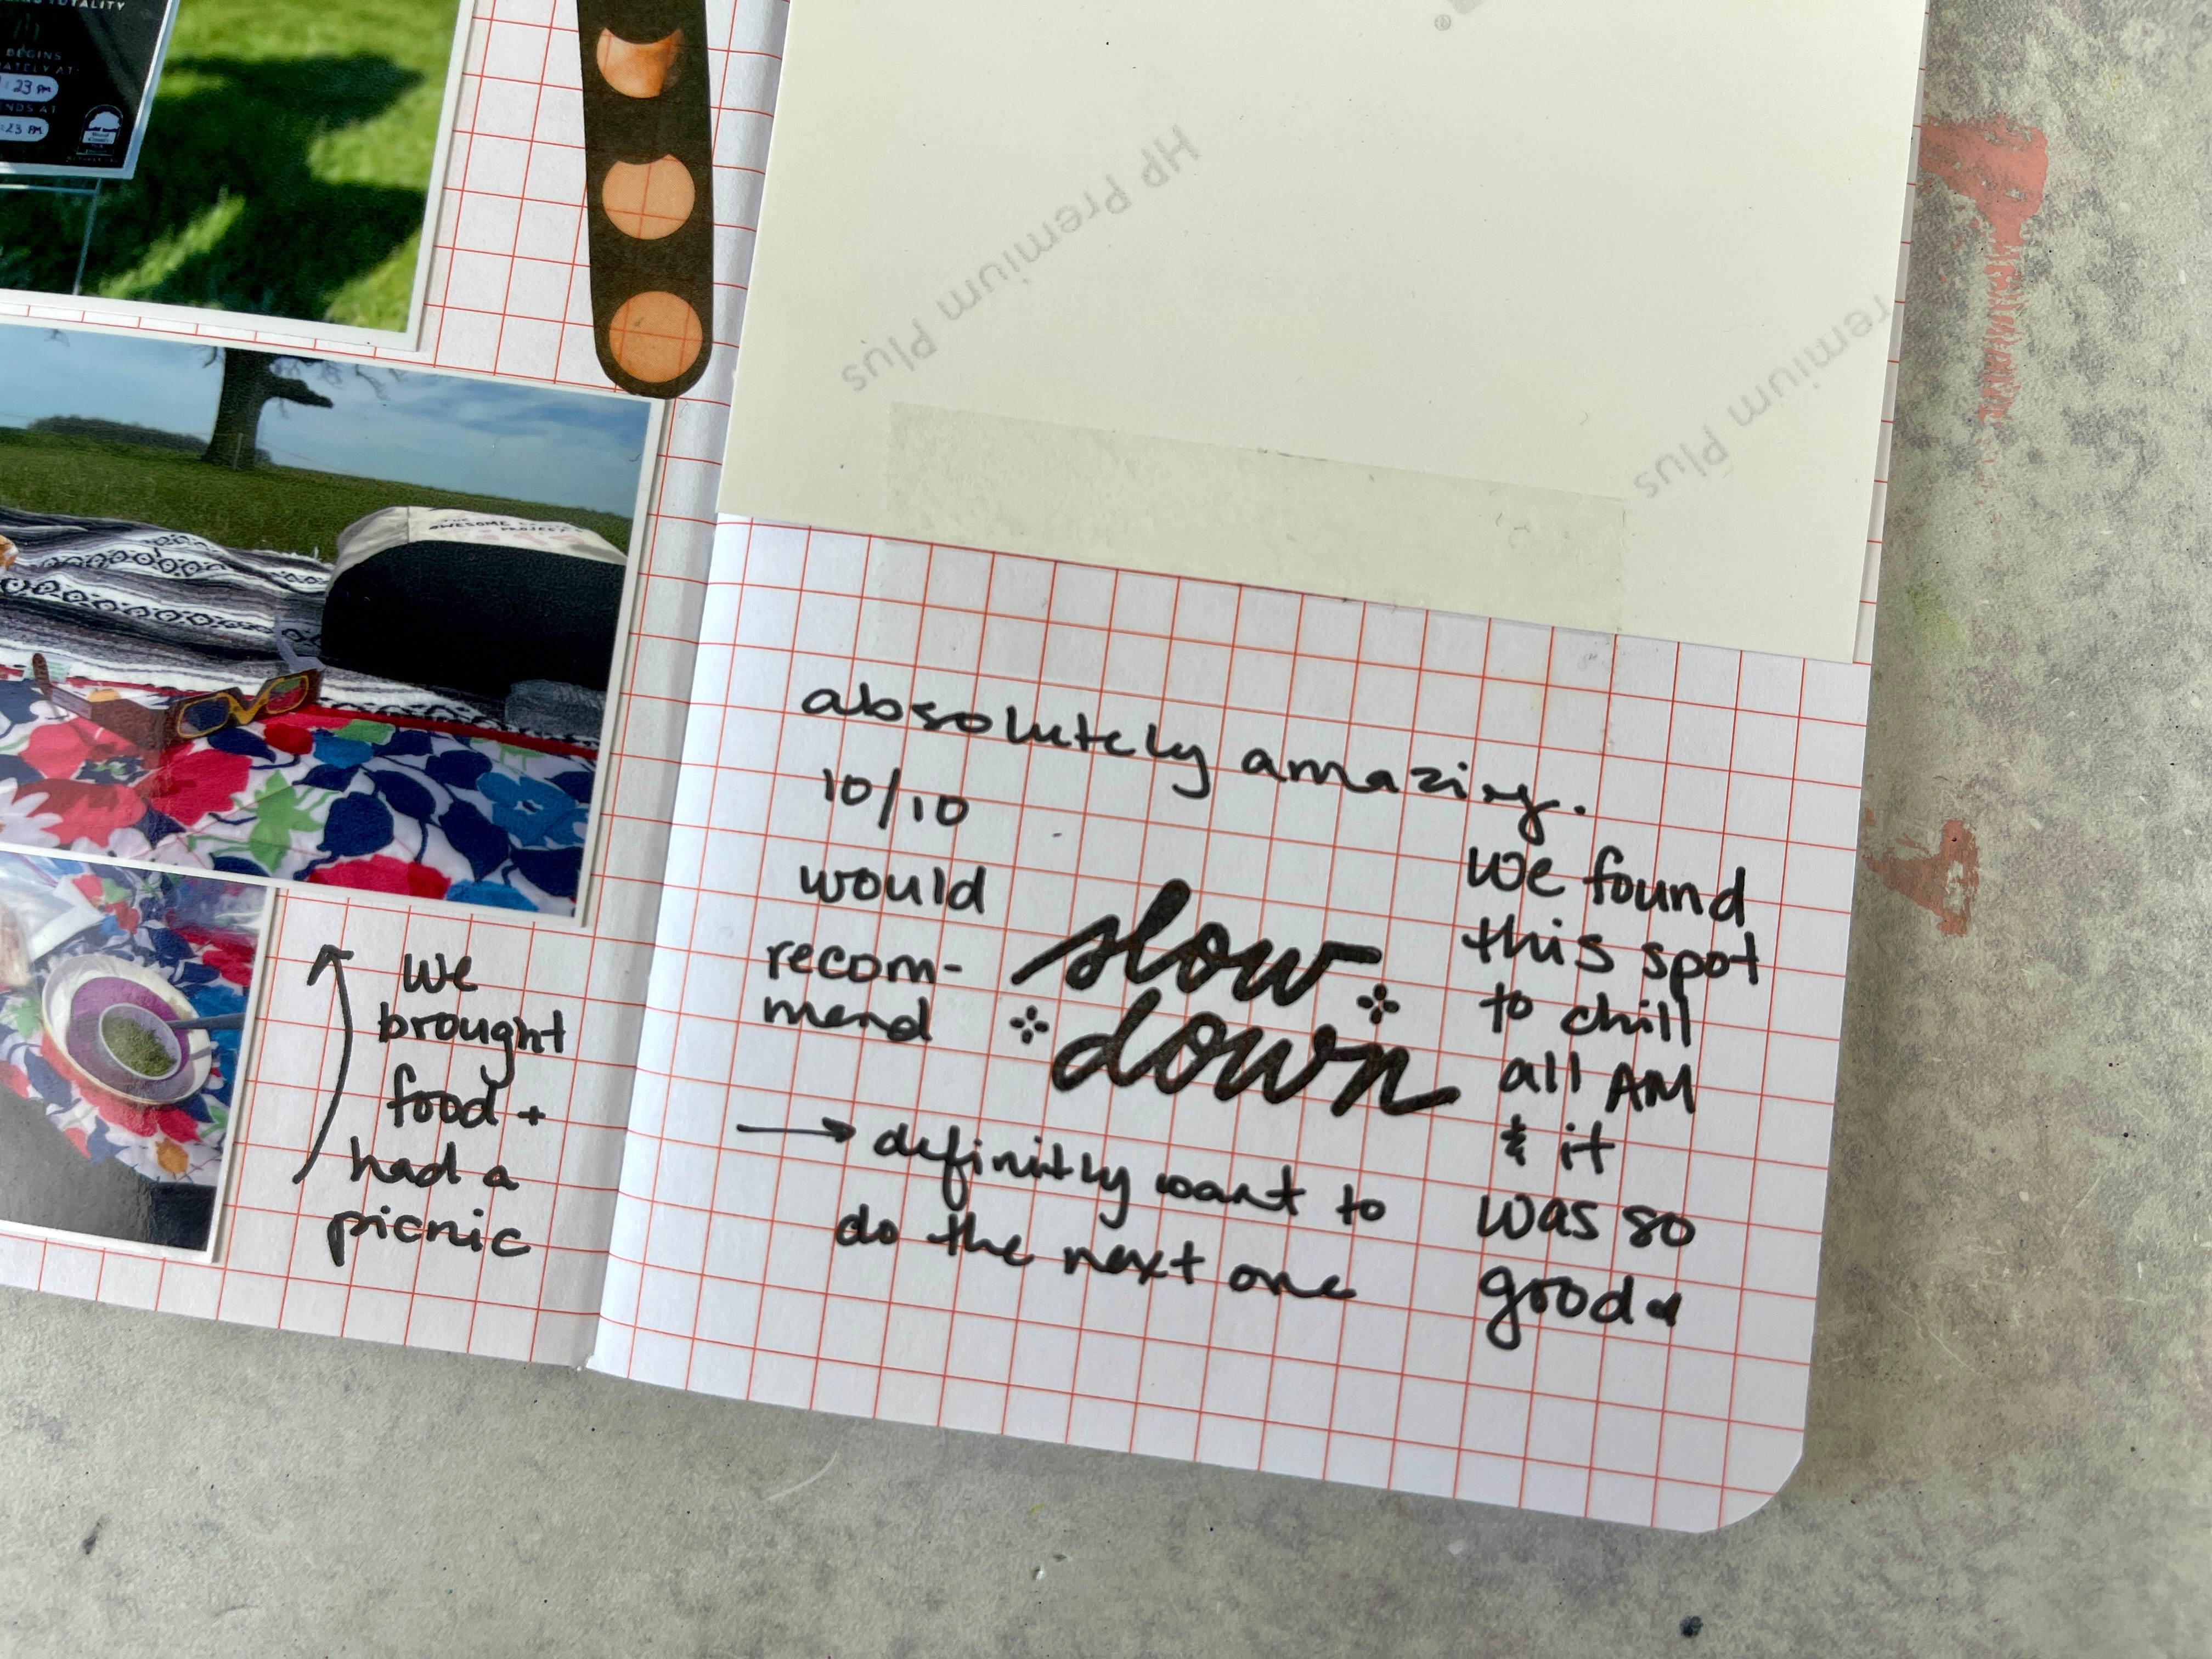 TOTALITY
BEGINS
AT:
:23 PM
ENDS AT
:23 PM
HP Premium Plus
remium Plus
AWESOME
PROJECT
we
brought
food +
had a
picnic
absolutely amazing.
10/10
would
recom-
mend
slow
down
→ definitly want to
do the next one
We found
this spot
to chill
all AM
& it
was so
good